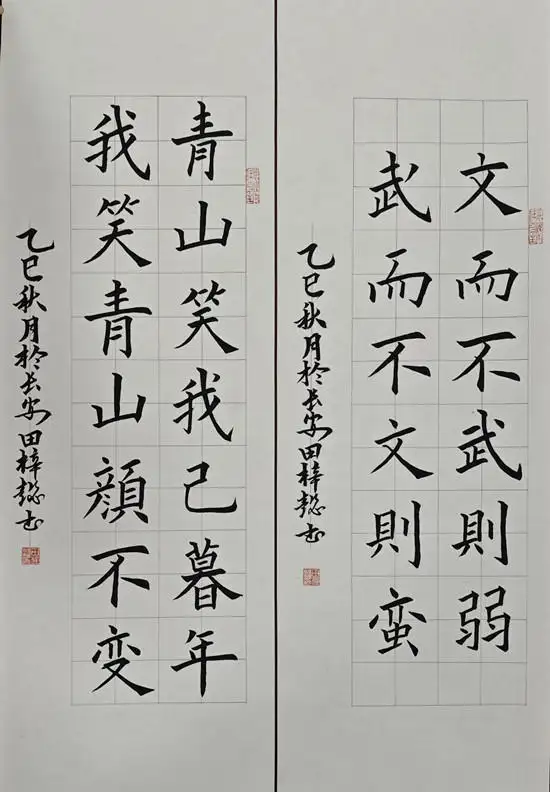 文而不武則弱
武而不文則蛮
乙巳秋月於长安田梓懿书
青山笑我己暮年
我笑青山顔不变
乙巳秋月於长安田梓懿书